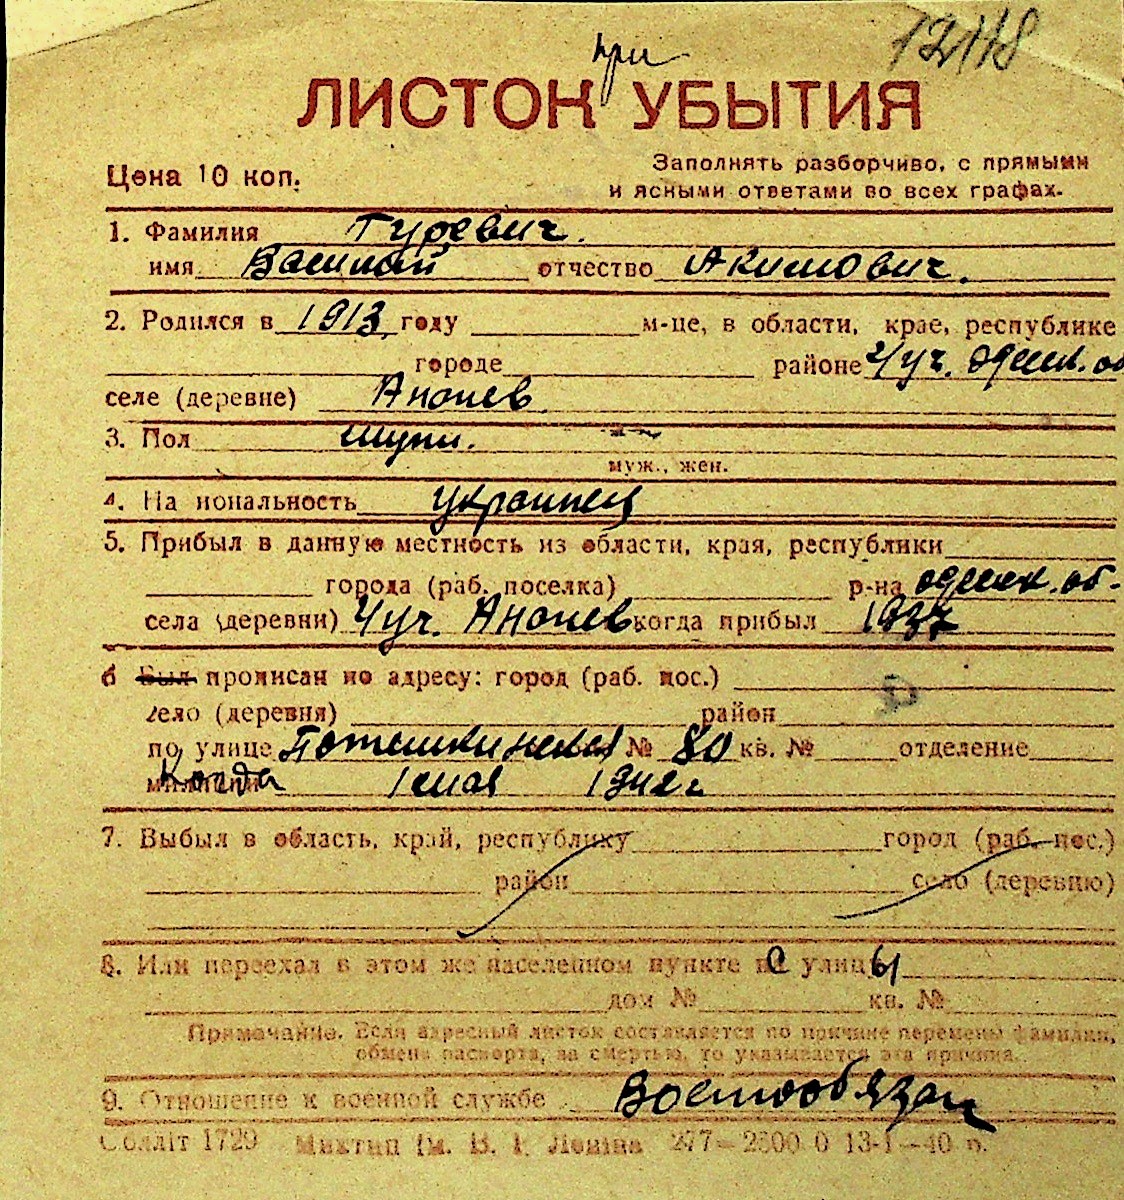 12118
при
ЛИСТОК УБЫТИЯ
Цена 10 коп.
Заполнять разборчиво, с прямыми
и ясными ответами во всех графах.
1. Фамилия Гуревич.
имя Василий отчество Акимович.
2. Родился в 1913 году м-це, в области, крае, республике
городе районе 4/уч. одесск. об
селе (деревне) Ананьев
3. Пол мужч.
муж., жен.
4. На иональность украинец
5. Прибыл в данную местность из области, края, республики
города (раб. поселка) р-на одесск. об-
села (деревни) 4 уч. Ананьев когда прибыл 1937
6 Был прописан по адресу: город (раб. пос.)
село (деревня) район
по улице Потемкинская № 80 кв. № отделение
милиции Когда 1 мая 1942г
7. Выбыл в область, край, республику город (раб. пос.)
район село (деревню)
8. Или переехал в этом же населенном пункте с улицы
дом № кв. №
Примечание. Если адресный листок составляется по причине перемены фамилии,
обмена паспорта, за смертью, то указывается эта причина.
9. Отношение к военной службе Военнообязан
Соллiт 1729 Миктип iм. В. I. Ленiна 277—2500 0 13-I—40 р.